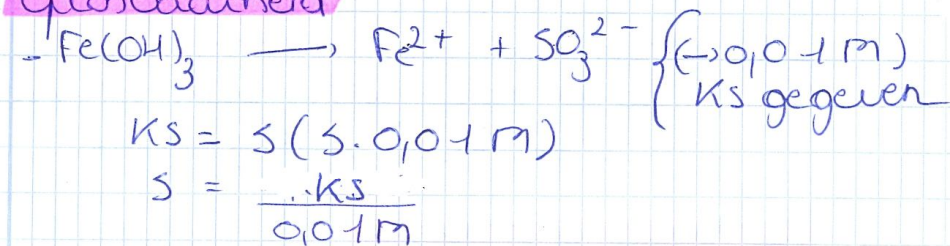 - Fe(OH)₃ ⟶ Fe²⁺ + SO₃²⁻ { (→0,01 M)
Ks gegeven
Ks = s(s·0,01 M)
s = Ks / 0,01 M